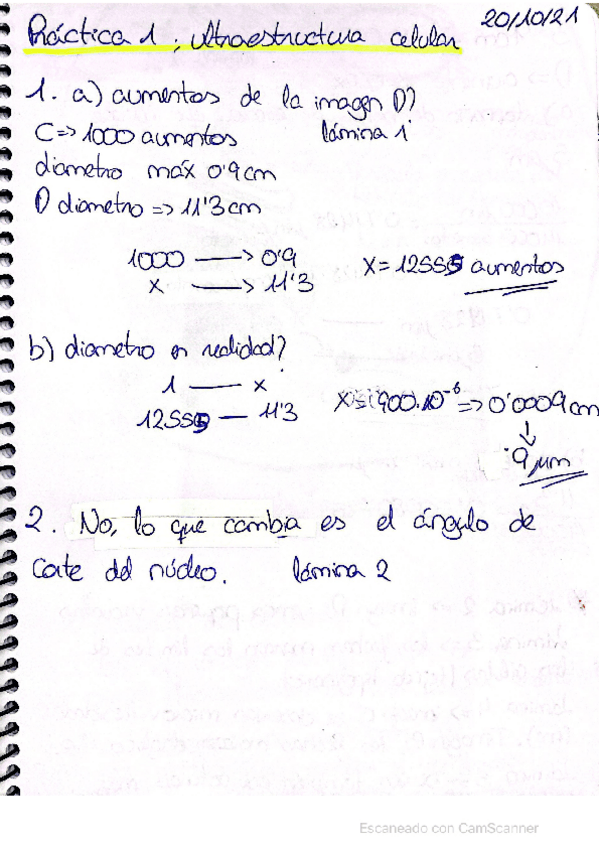 20/10/21
Práctica 1: ultraestructura celular
1. a) aumentos de la imagen D?
C => 1000 aumentos lámina 1
diametro máx 0'9 cm
D diametro => 11'3 cm
1000 —> 0'9
x —> 11'3
X = 12555 aumentos
b) diametro en realidad?
1 — x
12555 — 11'3
900·10⁻⁶ => 0'0009 cm
↓
9 µm
2. No, lo que cambia es el ángulo de
corte del núcleo. lámina 2
Escaneado con CamScanner